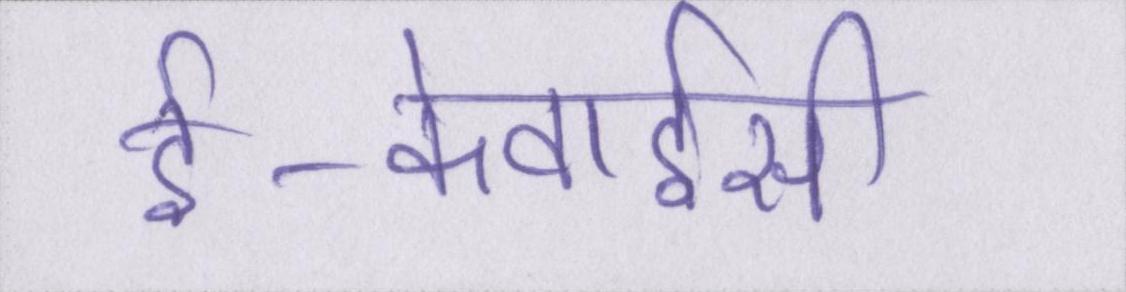 ई-केवाईसी